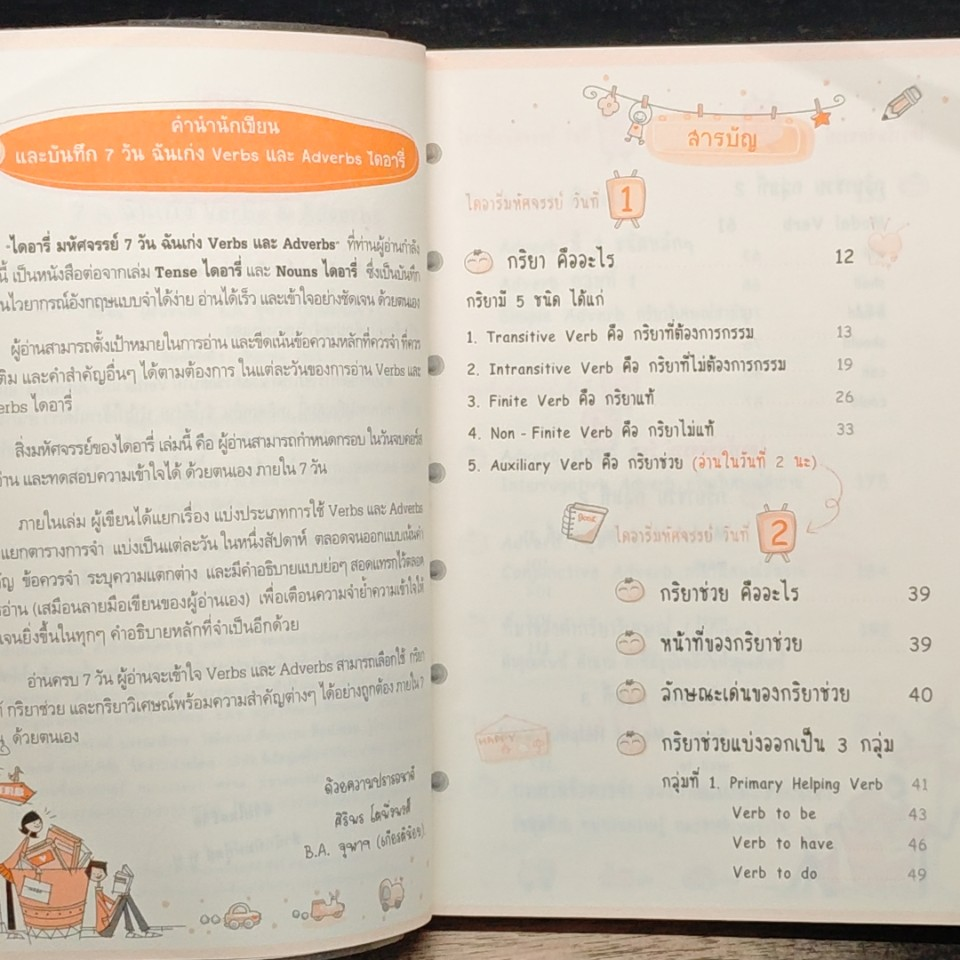 คำนำนักเขียน
และบันทึก 7 วัน ฉันเก่ง Verbs และ Adverbs ไดอารี่
"ไดอารี่ มหัศจรรย์ 7 วัน ฉันเก่ง Verbs และ Adverbs" ที่ท่านผู้อ่านกำลัง
นี้ เป็นหนังสือต่อจากเล่ม Tense ไดอารี่ และ Nouns ไดอารี่ ซึ่งเป็นบันทึก
ไวยากรณ์อังกฤษแบบจำได้ง่าย อ่านได้เร็ว และเข้าใจอย่างชัดเจน ด้วยตนเอง
ผู้อ่านสามารถตั้งเป้าหมายในการอ่าน และขีดเน้นข้อความหลักที่ควรจำ ที่ควร
และคำสำคัญอื่นๆ ได้ตามต้องการ ในแต่ละวันของการอ่าน Verbs และ
erbs ไดอารี่
สิ่งมหัศจรรย์ของไดอารี่ เล่มนี้ คือ ผู้อ่านสามารถกำหนดกรอบ ในวันจบคอร์ส
และทดสอบความเข้าใจได้ ด้วยตนเอง ภายใน 7 วัน
ภายในเล่ม ผู้เขียนได้แยกเรื่อง แบ่งประเภทการใช้ Verbs และ Adverbs
แยกตารางการจำ แบ่งเป็นแต่ละวัน ในหนึ่งสัปดาห์ ตลอดจนออกแบบเน้นคำ
ข้อควรจำ ระบุความแตกต่าง และมีคำอธิบายแบบย่อๆ สอดแทรกไว้ตลอด
(เสมือนลายมือเขียนของผู้อ่านเอง) เพื่อเตือนความจำย้ำความเข้าใจให้
เจนยิ่งขึ้นในทุกๆ คำอธิบายหลักที่จำเป็นอีกด้วย
อ่านครบ 7 วัน ผู้อ่านจะเข้าใจ Verbs และ Adverbs สามารถเลือกใช้ กริยา
กริยาช่วย และกริยาวิเศษณ์พร้อมความสำคัญต่างๆ ได้อย่างถูกต้อง ภายใน 7
ด้วยตนเอง
ด้วยความปรารถนาดี
B.A. จุฬาฯ (เกียรตินิยม)
สารบัญ
ไดอารี่มหัศจรรย์ วันที่ 1
กริยา คืออะไร 12
กริยามี 5 ชนิด ได้แก่
1. Transitive Verb คือ กริยาที่ต้องการกรรม 13
2. Intransitive Verb คือ กริยาที่ไม่ต้องการกรรม 19
3. Finite Verb คือ กริยาแท้ 26
4. Non - Finite Verb คือ กริยาไม่แท้ 33
5. Auxiliary Verb คือ กริยาช่วย (อ่านในวันที่ 2 นะ)
ไดอารี่มหัศจรรย์ วันที่ 2
กริยาช่วย คืออะไร 39
หน้าที่ของกริยาช่วย 39
ลักษณะเด่นของกริยาช่วย 40
กริยาช่วยแบ่งออกเป็น 3 กลุ่ม
กลุ่มที่ 1. Primary Helping Verb 41
Verb to be 43
Verb to have 46
Verb to do 49